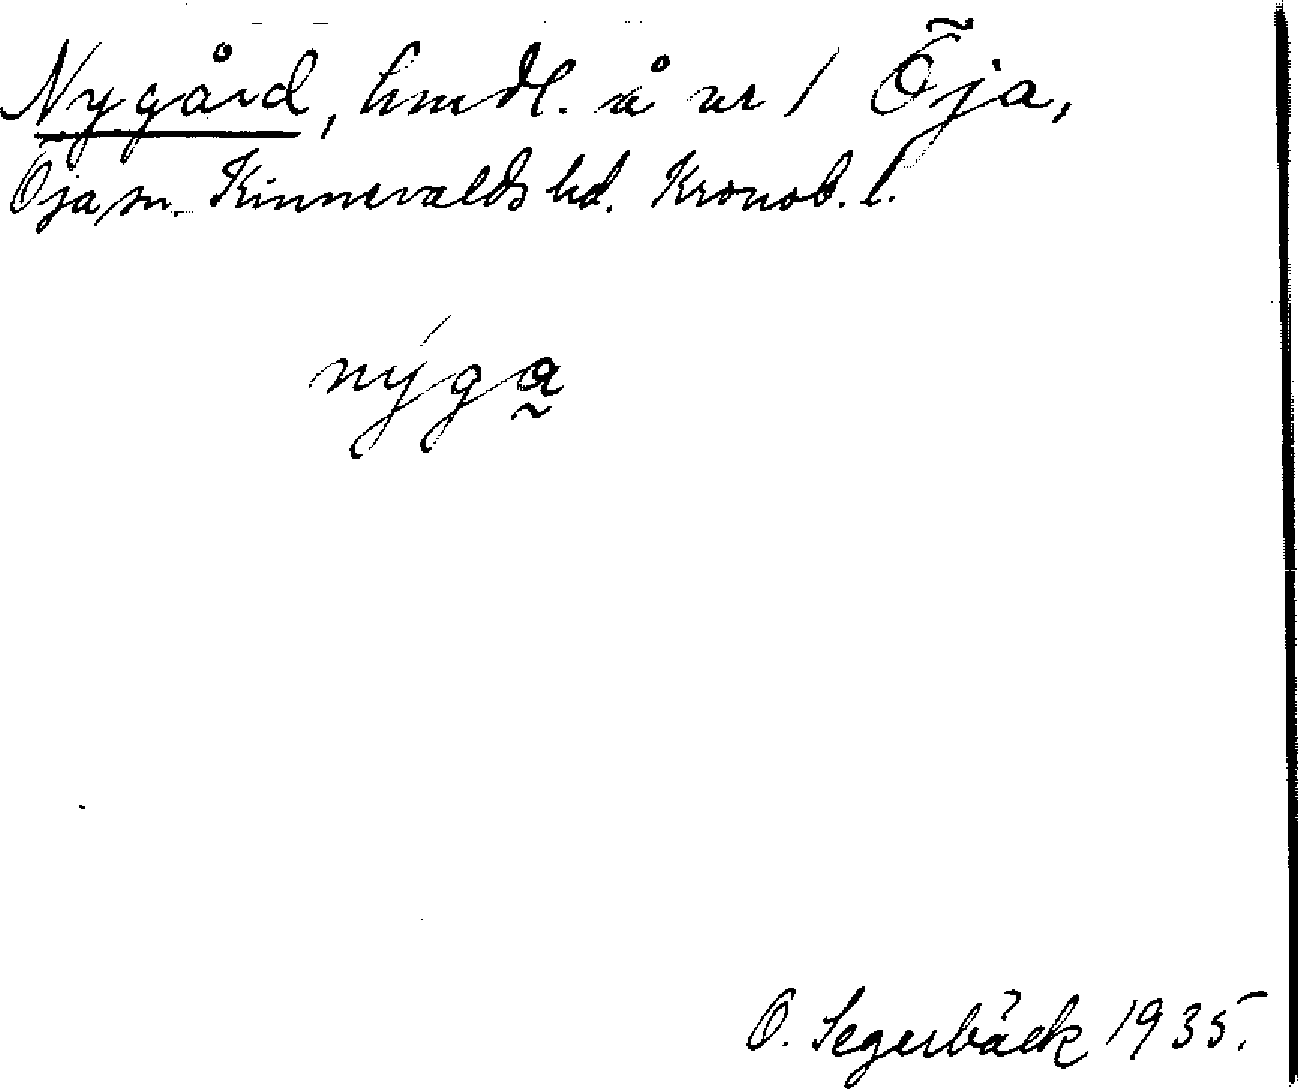 Nygård, hmdl. å nr 1 Öja,
Öja sn. Kinnevalds hd. Kronob. l.
nýga̰
O. Segerbäck 1935.